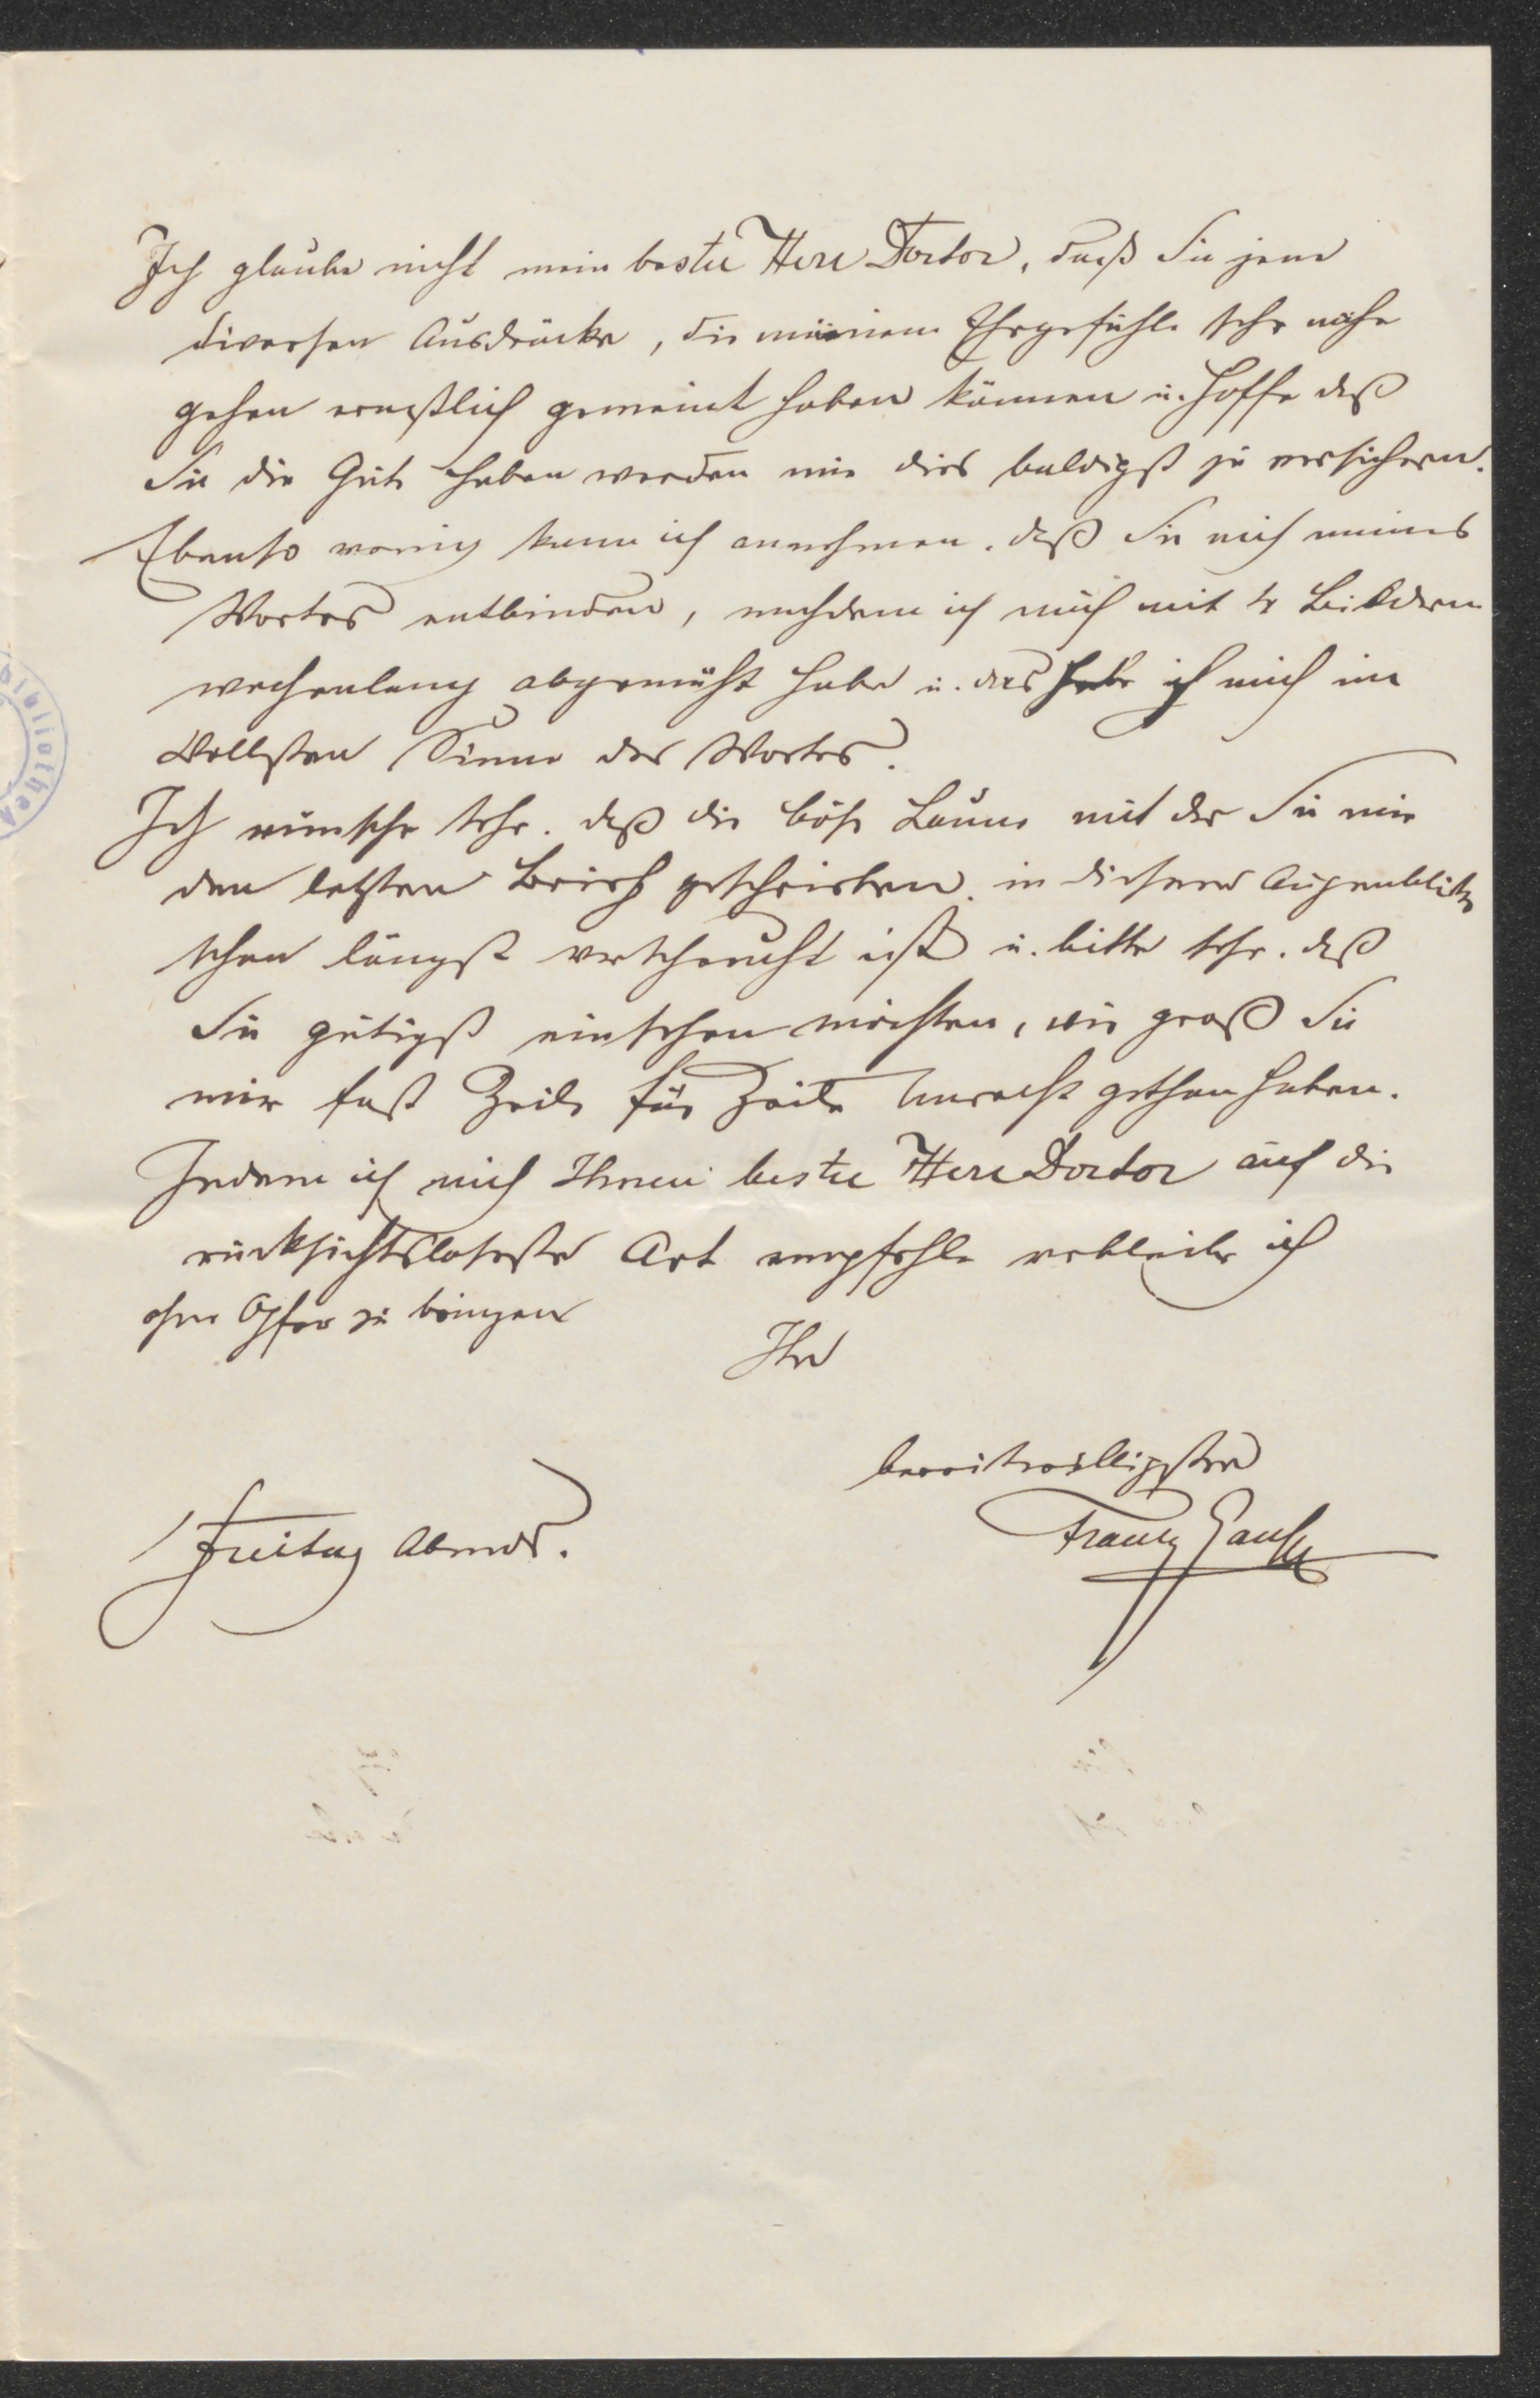 Ich glaube nicht mein bester Herr Doctor, daß Sie jene
diversen Ausdrücke, die meinem Ehrgefühle sehr nahe
gehen ernstlich gemeint haben können u. hoffe daß
Sie die Güte haben werden mir dies baldigst zu versichern.
Ebenso wenig kann ich annehmen, daß Sie mich meines
Wortes entbinden, nachdem ich mich mit 4 Bildern
wochenlang abgemüht habe u. das habe ich mich im
vollsten Sinne des Wortes.
Ich wünsche sehr, daß die böse Laune mit der Sie mir
den letzten Brief geschrieben, in diesem Augenblicke
schon längst verscheucht ist u. bitte sehr, daß
Sie gütigst einsehen möchten, wie groß Sie
mir fast Zeile für Zeile Unrecht gethan haben.
Indem ich mich Ihnen bester Herr Doctor auf die
rücksichtsloseste Art empfehle verbleibe ich
ohne Opfer zu bringen
Ihr
bereitwilligster
Freitag Abends.
Franz Gaul